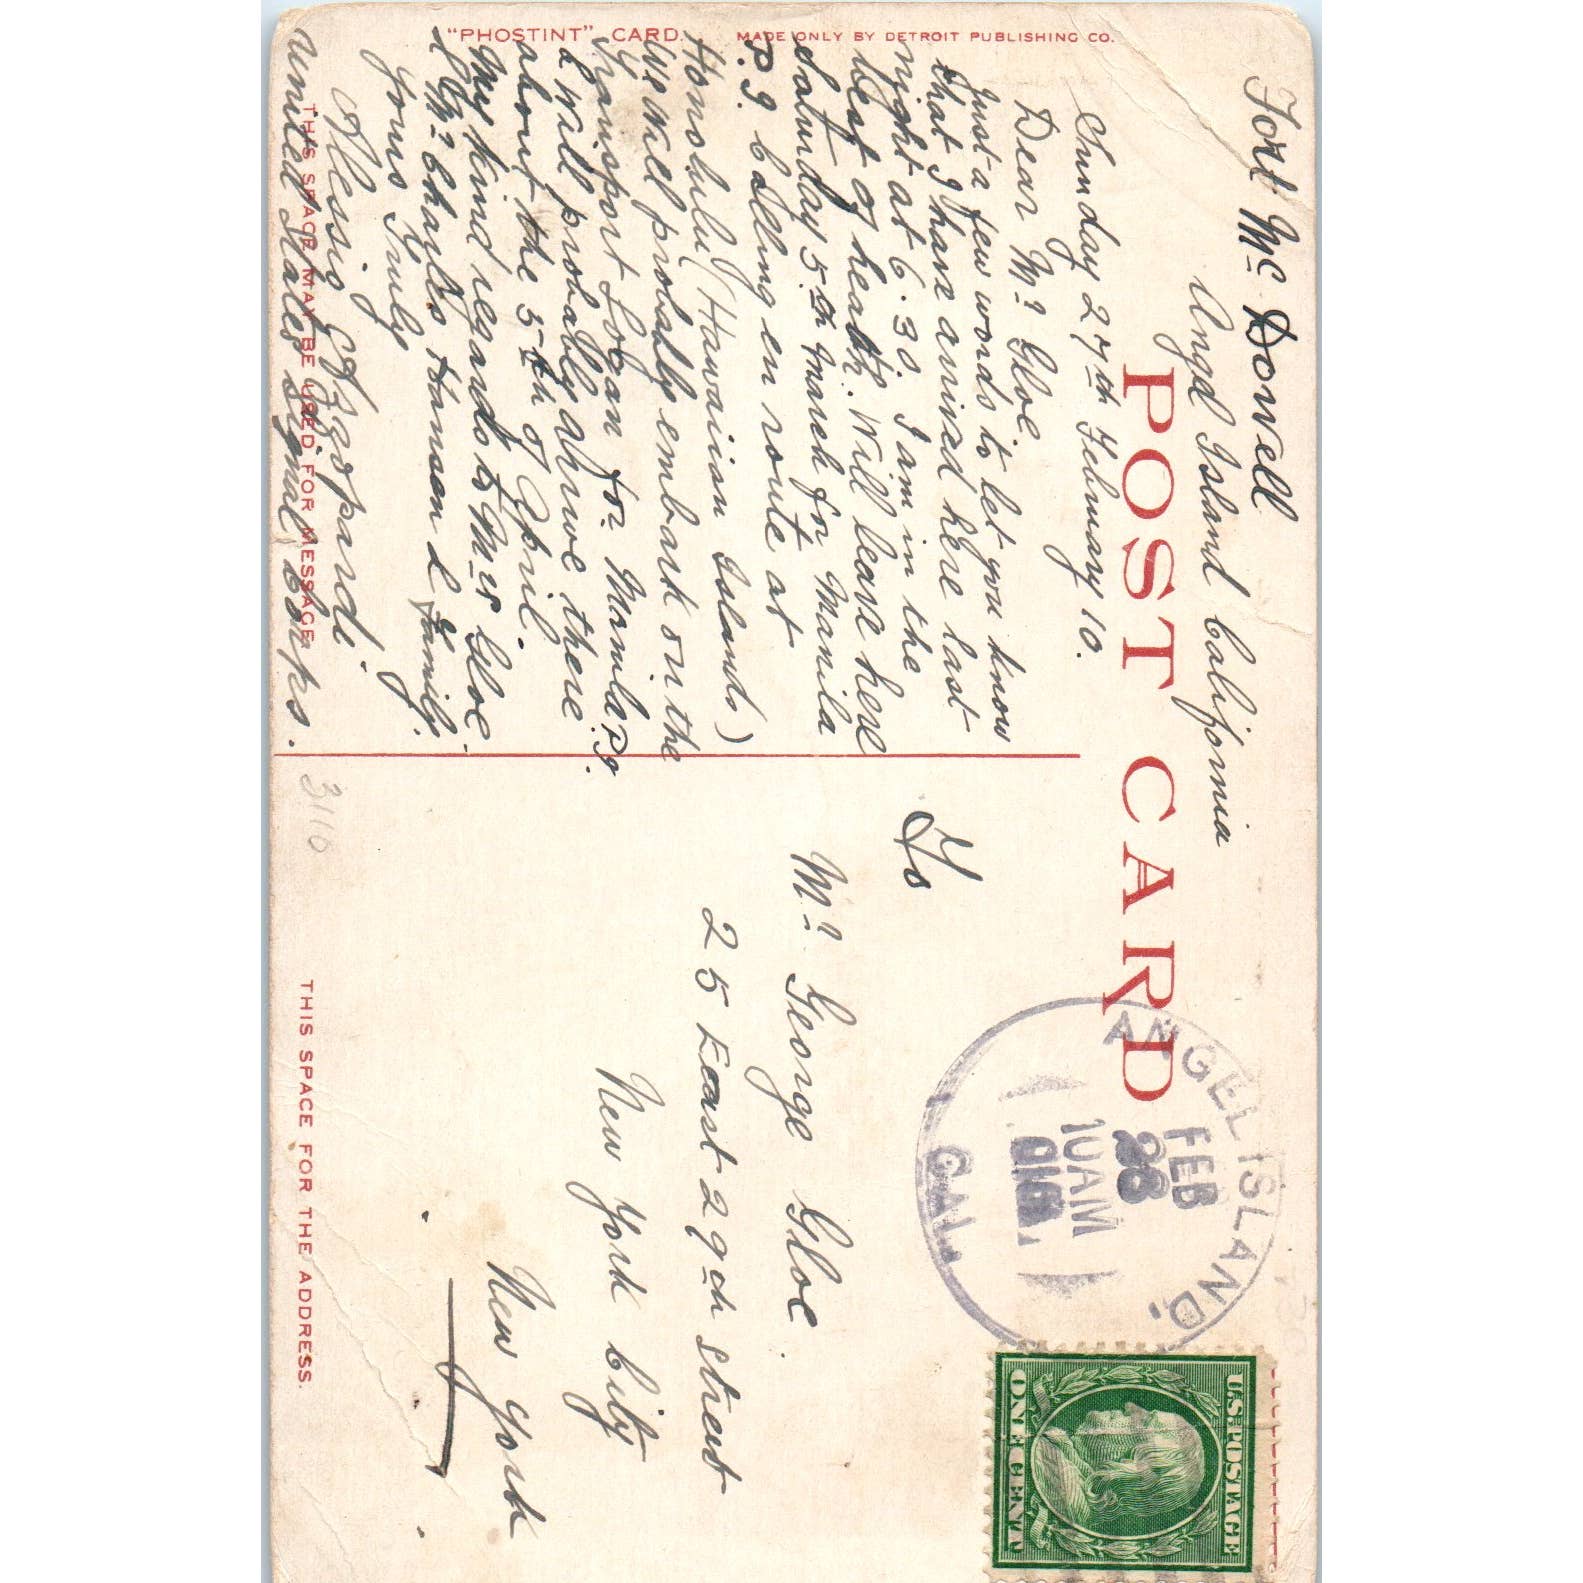 Fort Mc Dowell
Angel Island California
POST CARD
Sunday 27th February 10.
Dear Mr Gloe
Just a few words to let you know
that I have arrived here last
night at 6.30. I am in the
best of health. Will leave here
Saturday 5th March for Manila
P.I. Calling en route at
Honolulu (Hawaiian Islands)
We will probably embark on the
transport Logan for Manila P.I.
& will probably arrive there
about the 5th of April.
My kind regards to Mrs Gloe.
& Mr Charles Hanson & Family
Yours Truly
United States Signal Corps.
"PHOSTINT" CARD.
MADE ONLY BY DETROIT PUBLISHING CO.
THIS SPACE MAY BE USED FOR MESSAGE
To
Mr George Gloe
25 East 29th Street
New York City
New York
3110
THIS SPACE FOR THE ADDRESS.
ANGEL ISLAND,
FEB
28
10AM
1910
CAL.
U.S. POSTAGE
ONE CENT